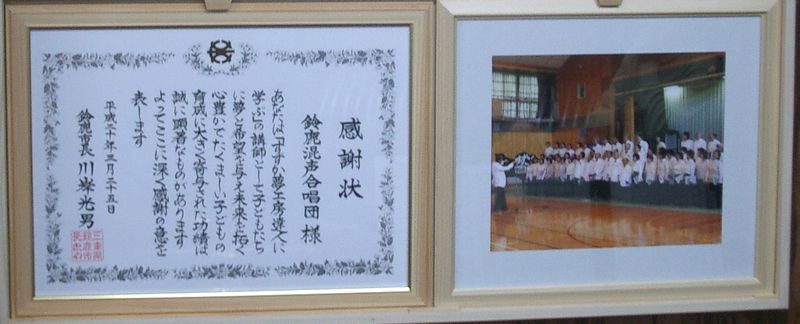 感謝状
鈴鹿混声合唱団 様
あなたは「すずか夢工房達人に
学ぶ」の講師として子どもたち
に夢と希望を与え未来を拓く
心豊かでたくましい子どもの
育成に大きく寄与された功績は
誠に顕著なものがあります
よってここに深く感謝の意を
表します
平成二十年三月二十五日
鈴鹿市長 川岸光男